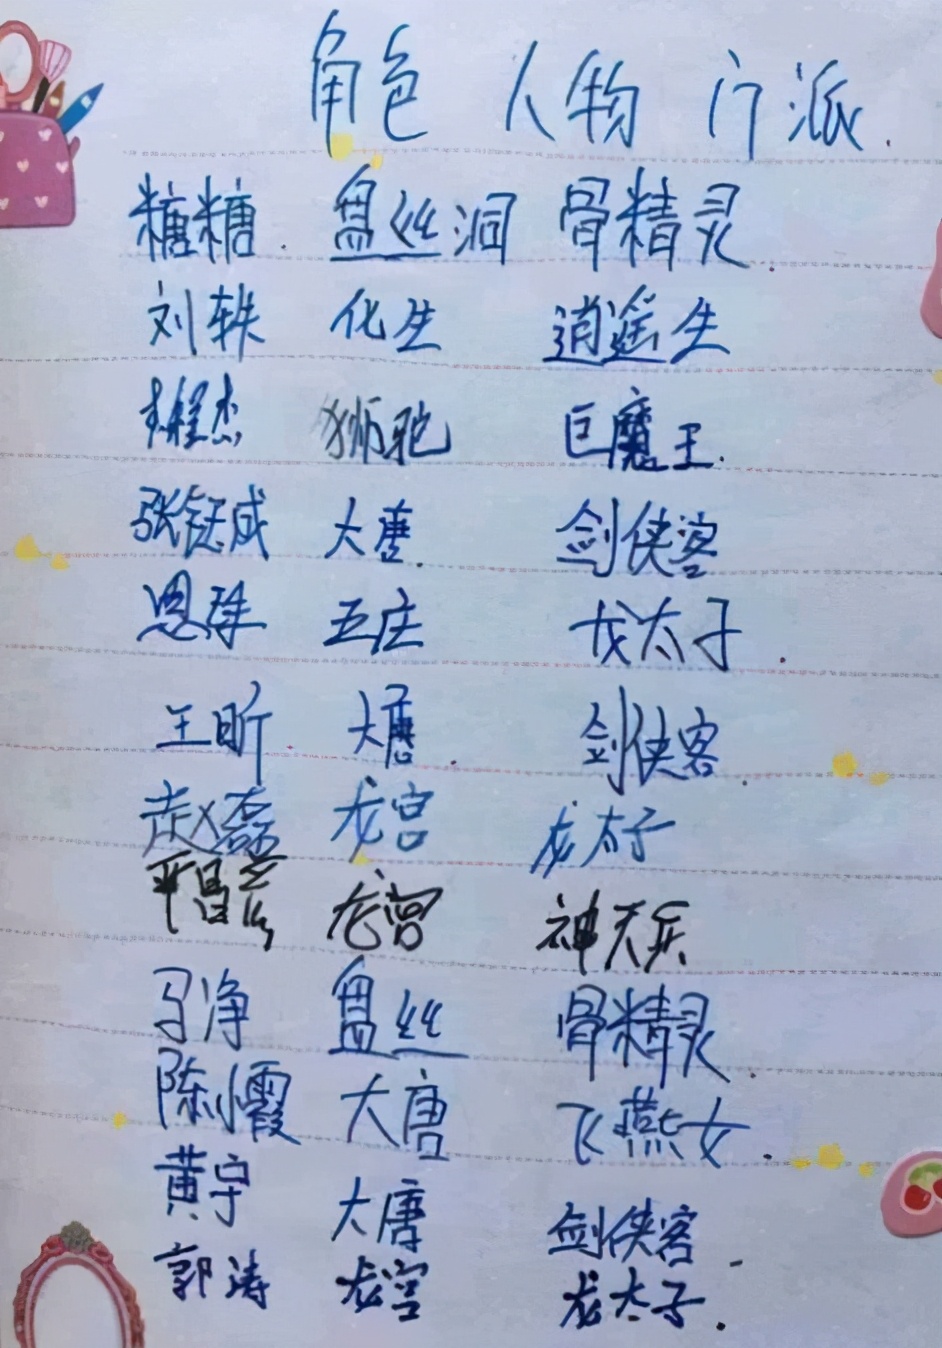 角色 人物 门派.
糖糖. 盘丝洞 骨精灵.
刘轶 化生 逍遥生
杰 狮驼 巨魔王.
张钰威 大唐. 剑侠客
恩琸 五庄 龙太子.
王昕 大唐. 剑侠客.
赵磊 龙宫 龙太子
平昌 龙宫 神天兵
马净 盘丝 骨精灵.
陈小霞 大唐 飞燕女.
黄宇 大唐 剑侠客.
郭涛 龙宫 龙太子.